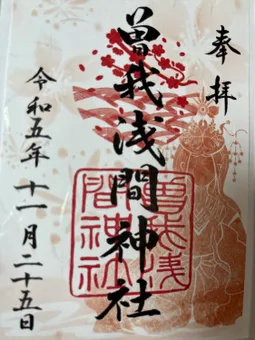 奉拝
曽我浅間神社
令和五年十一月二十五日
曽我浅
間神社